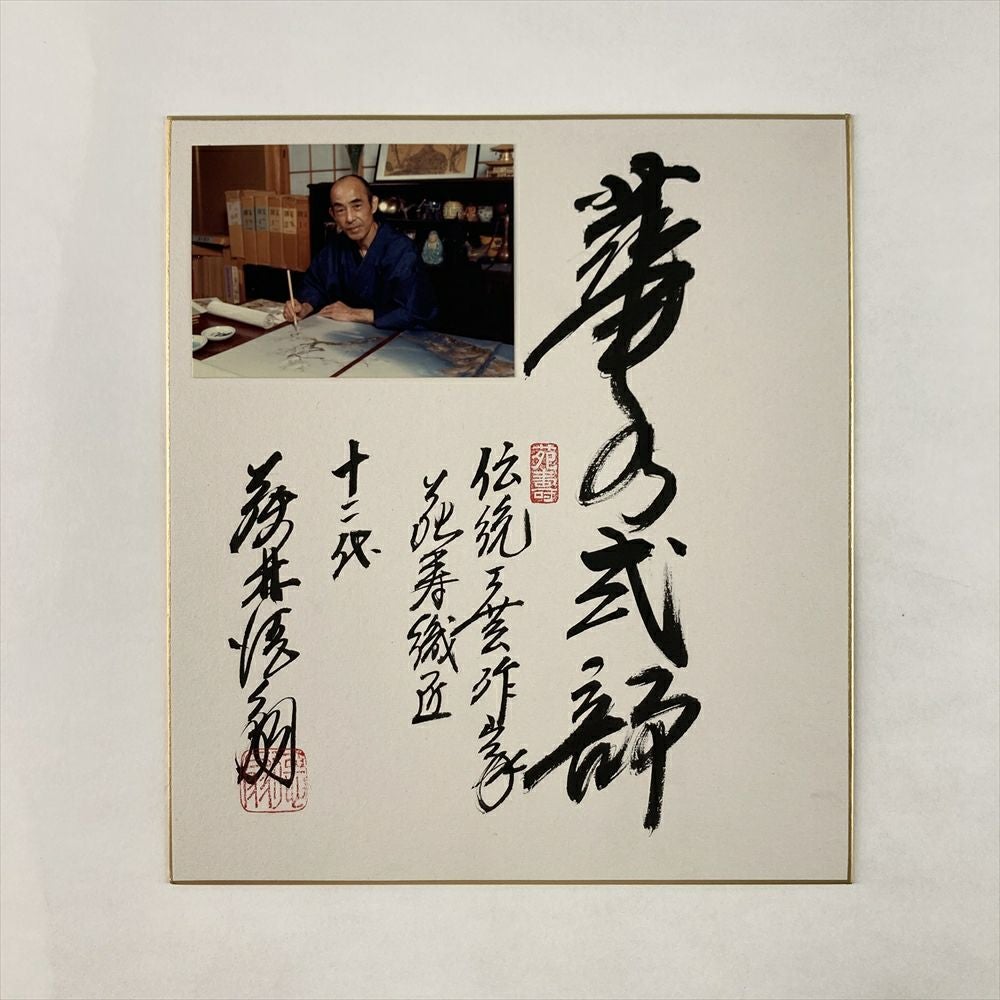 華の式部
苑壽
伝統工芸作家
苑寿織匠
十二代
藤林徳扇